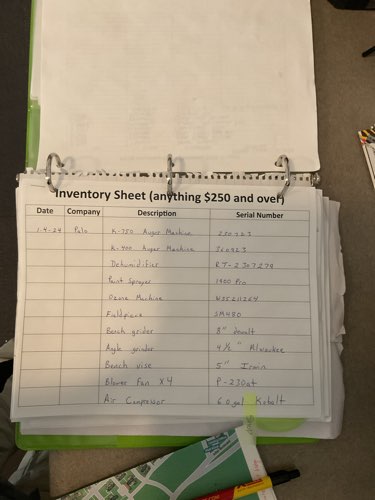 Inventory Sheet (anything $250 and over)
Date Company Description Serial Number
1-4-24 Polo K-750 Auger Machine
K-400 Auger Machine
Dehumidifier RT-2307279
Paint Sprayer 1900 Pro
Ozone Machine
Fieldpiece SM480
Bench grider 8" dewalt
Angle grinder 4 1/2" Milwaukee
Bench vise 5" Irwin
Blower Fan X4 P-230at
Air Compressor 6.0 gal Kobalt